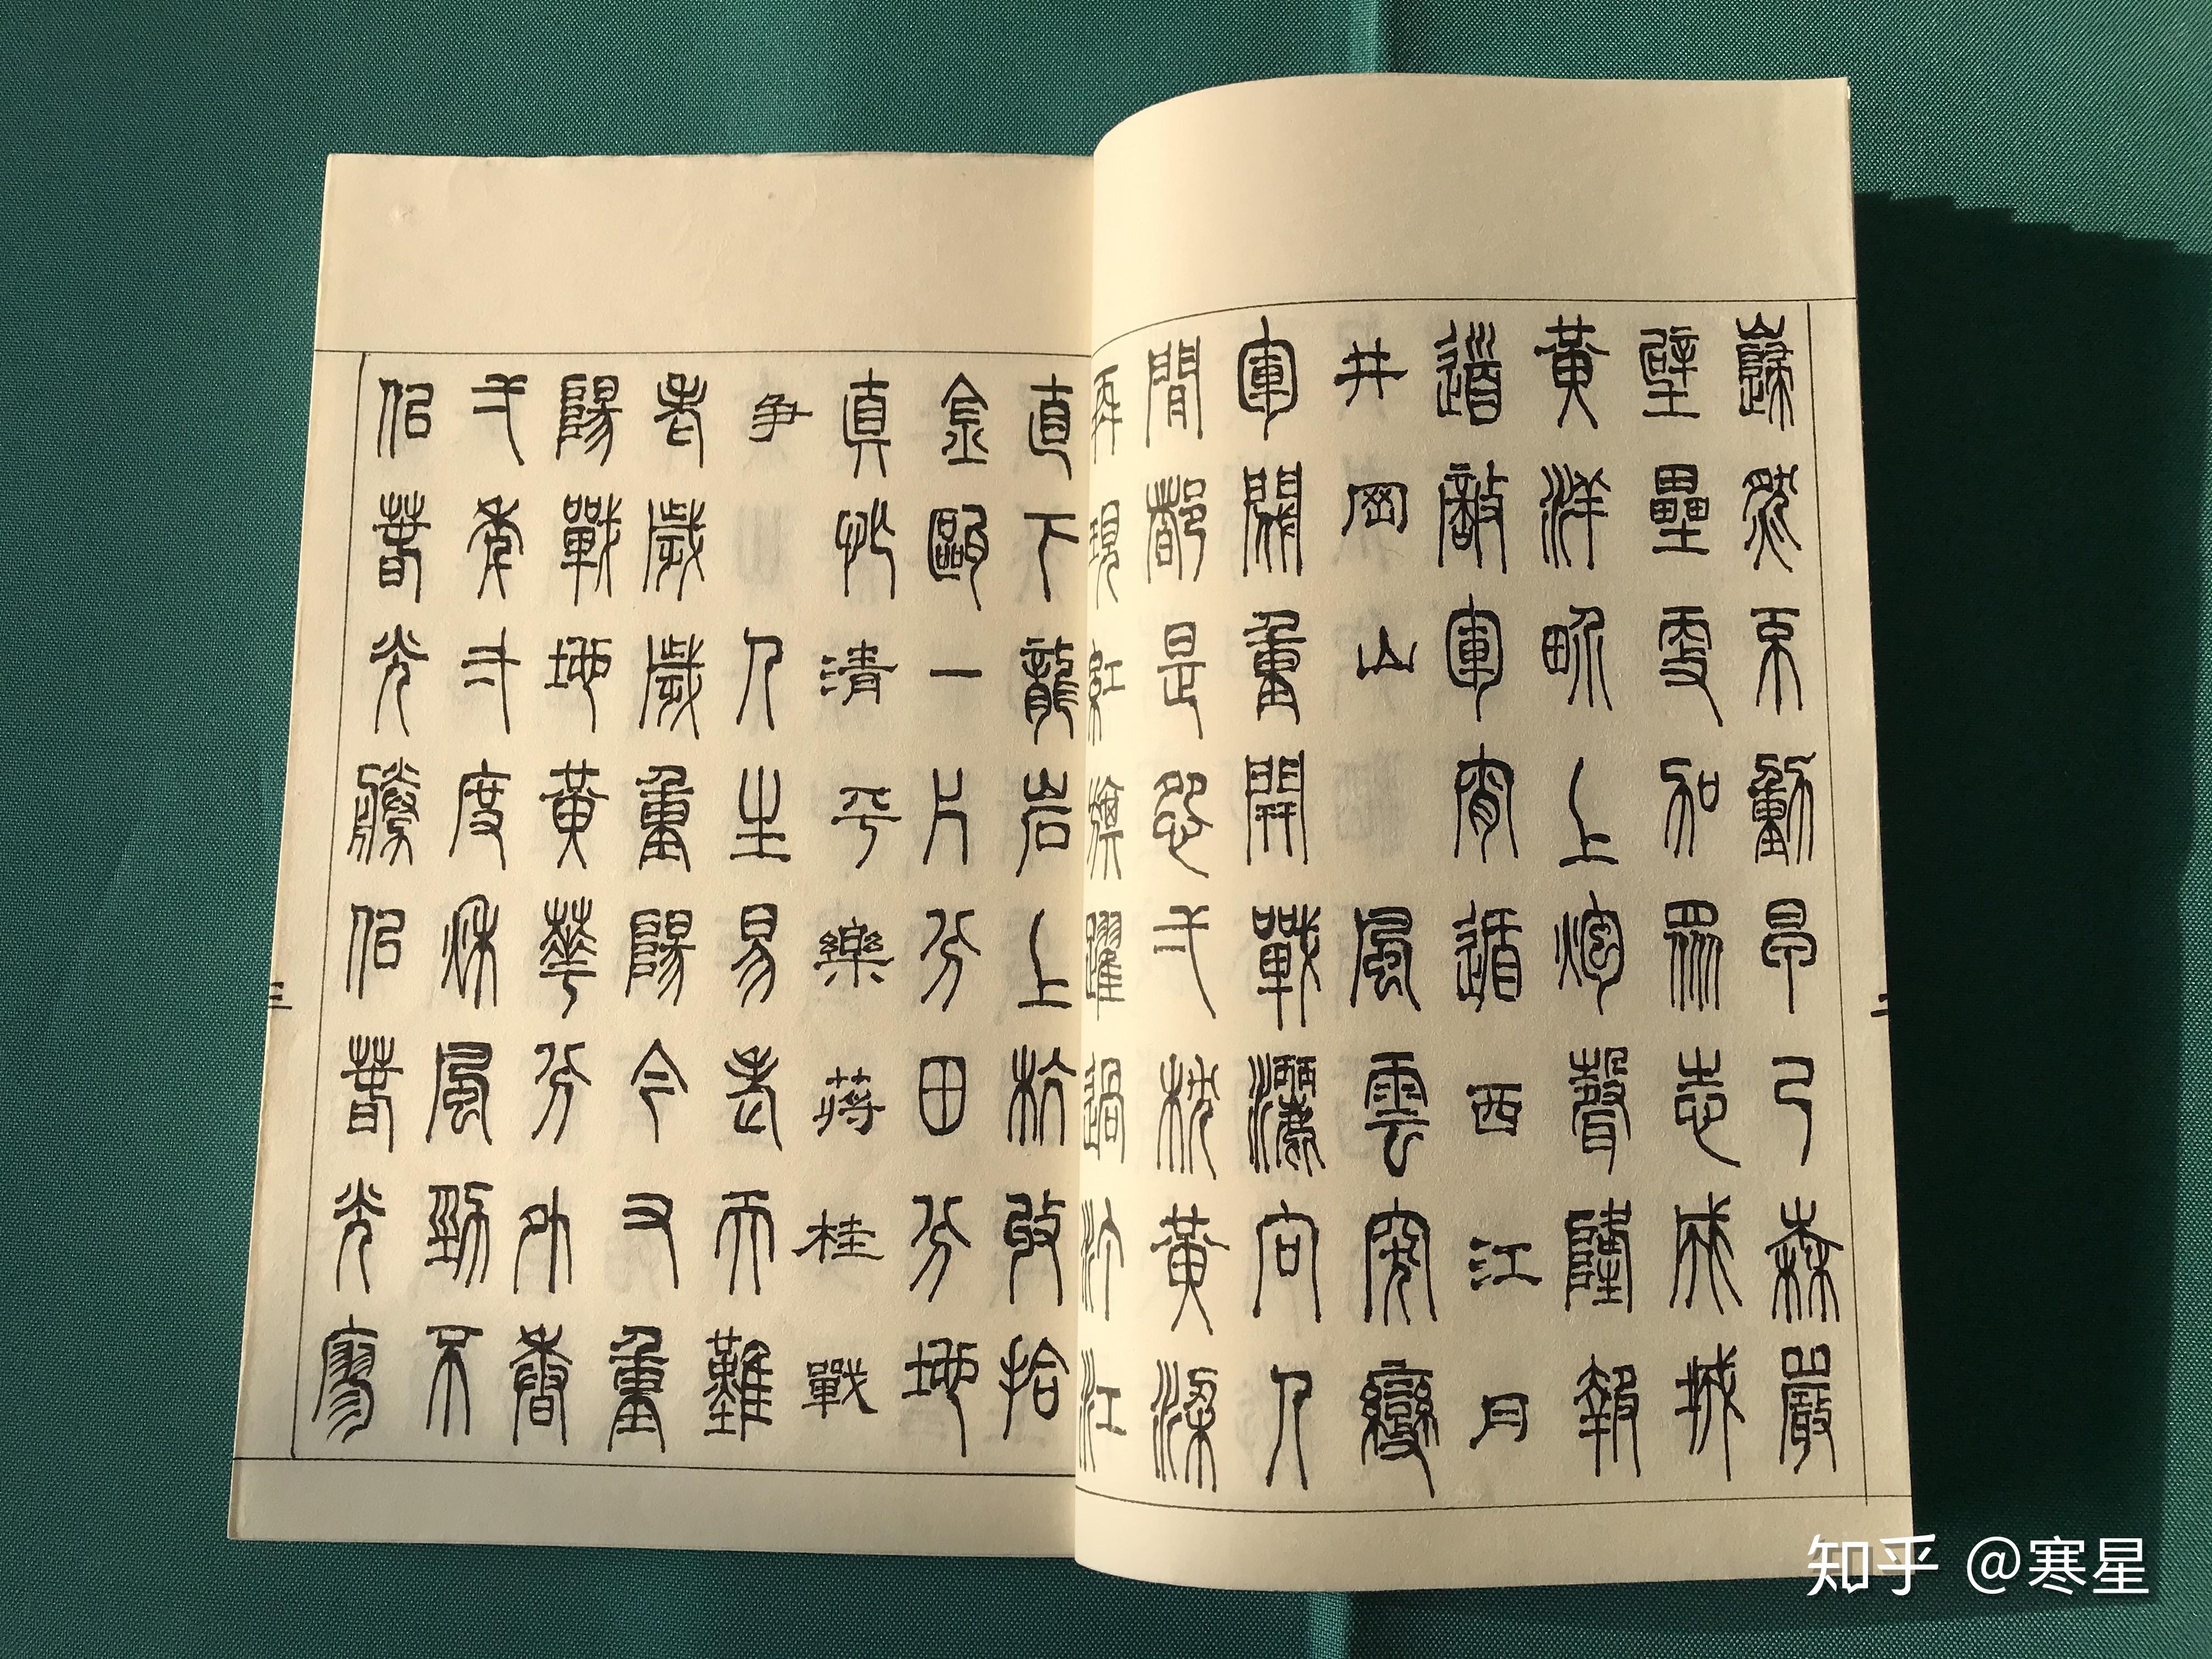 巋然不動早已森嚴
壁壘更加眾志成城
黃洋界上炮聲隆報
道敵軍宵遁西江月
井岡山風雲突變
軍閥重開戰灑向人
間都是怨弌枕黃粱
再現紅旗躍過汀江
直下龍岩上杭收拾
金甌一片分田分地
真忙清平樂蔣桂戰
爭人生易老天難
老歲歲重陽今又重
陽戰地黃華分外香
弌年弌度秋風勁不
似春光勝似春光寥
三
知乎 @寒星